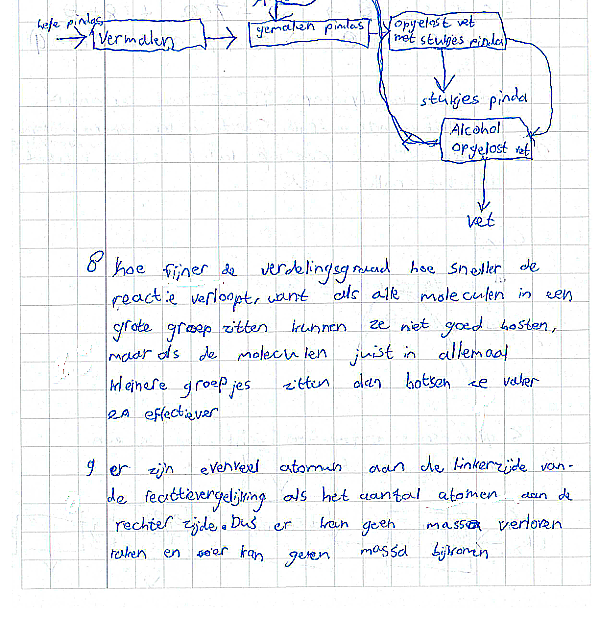 hele pindas
vermalen
gemalen pindas
opgelost vet
met stukjes pinda
stukjes pinda
Alcohol
opgelost vet
vet
8 hoe fijner de verdelingsgraad hoe sneller de
reactie verloopt, want als alle moleculen in een
grote groep zitten kunnen ze niet goed botsen,
maar als de moleculen juist in allemaal
kleinere groepjes zitten dan botsen ze vaker
en effectiever
9 er zijn evenveel atomen aan de linkerzijde van
de reactievergelijking als het aantal atomen aan de
rechter zijde. Dus er kan geen massa verloren
raken en er kan geen massa bijkomen